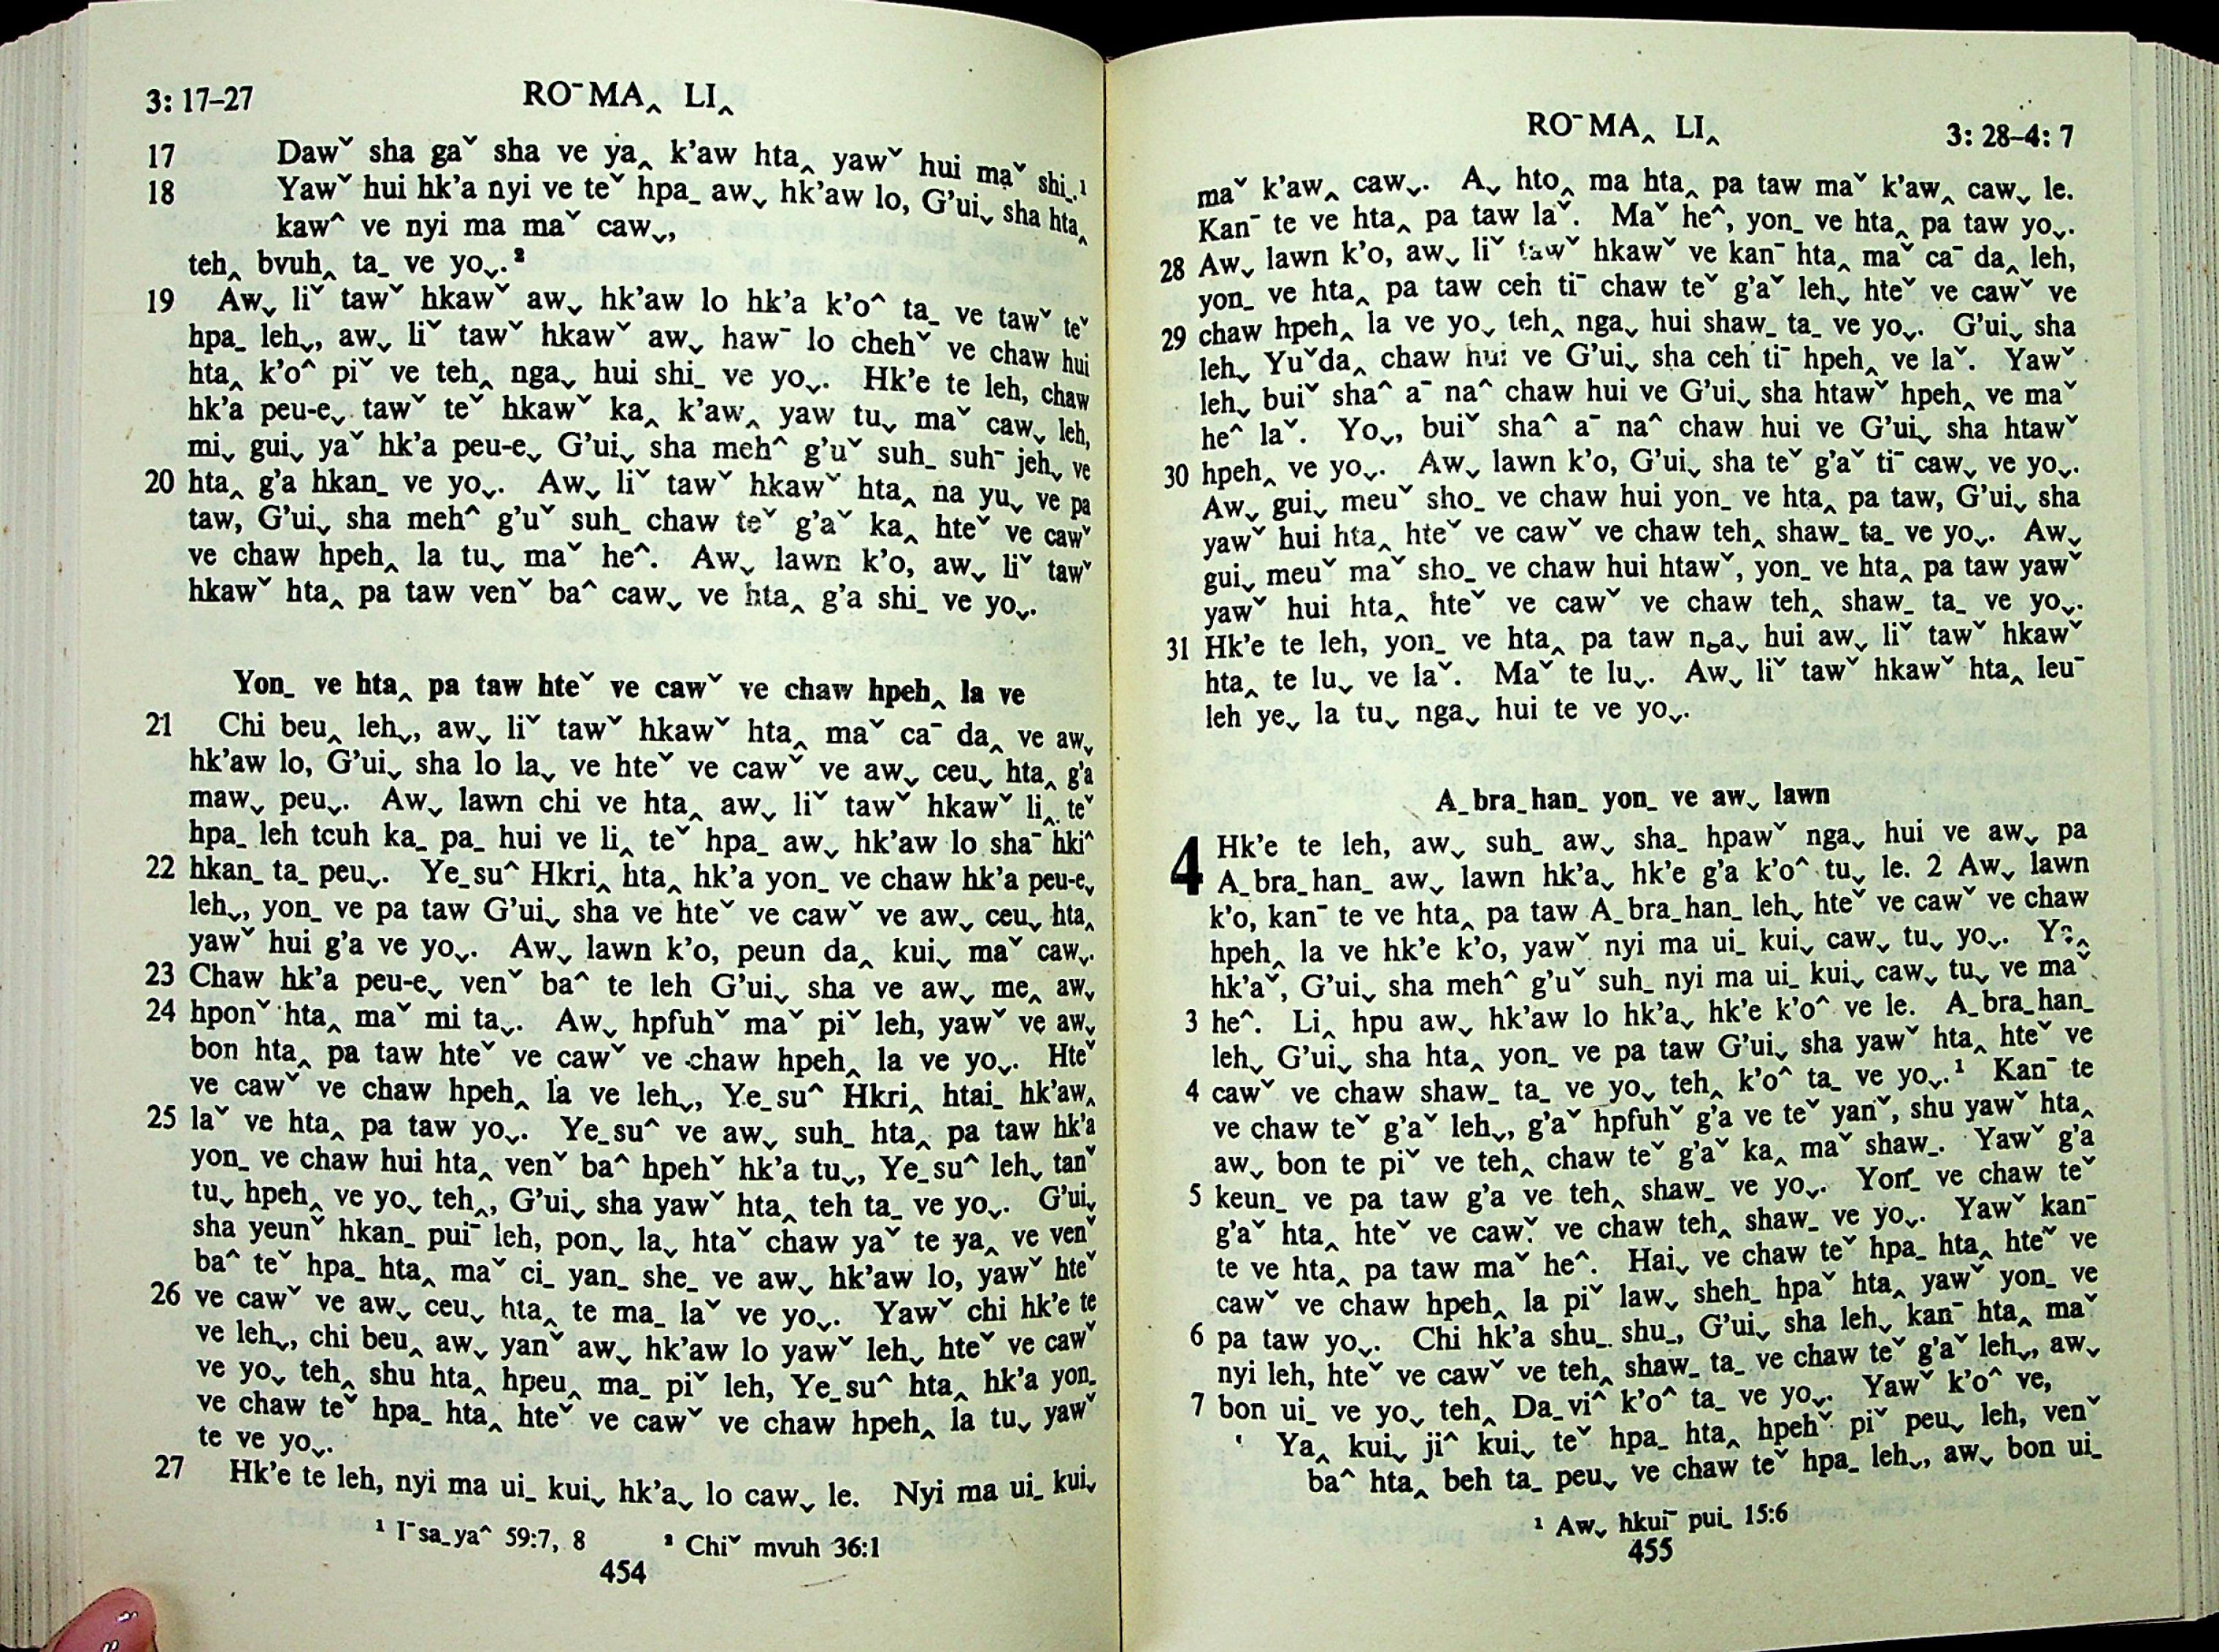 3: 17–27
RO¯MA‸ LI‸
17 Dawˇ sha gaˇ sha ve ya‸ k’aw hta‸ yawˇ hui maˇ shi_.¹
18 Yawˇ hui hk’a nyi ve teˇ hpa_ aw⌄ hk’aw lo, G’ui⌄ sha hta‸
kaw^ ve nyi ma maˇ caw⌄,
teh‸ bvuh‸ ta_ ve yo⌄.²
19 Aw⌄ liˇ tawˇ hkawˇ aw⌄ hk’aw lo hk’a k’o^ ta_ ve tawˇ teˇ
hpa_ leh⌄, aw⌄ liˇ tawˇ hkawˇ aw⌄ haw¯ lo chehˇ ve chaw hui
hta‸ k’o^ piˇ ve teh‸ nga⌄ hui shi_ ve yo⌄. Hk’e te leh, chaw
hk’a peu-e⌄ tawˇ teˇ hkawˇ ka‸ k’aw‸ yaw tu⌄ maˇ caw⌄ leh,
mi⌄ gui⌄ yaˇ hk’a peu-e⌄ G’ui⌄ sha meh^ g’uˇ suh_ suh¯ jeh⌄ ve
20 hta‸ g’a hkan_ ve yo⌄. Aw⌄ liˇ tawˇ hkawˇ hta‸ na yu⌄ ve pa
taw, G’ui⌄ sha meh^ g’uˇ suh_ chaw teˇ g’aˇ ka‸ hteˇ ve cawˇ
ve chaw hpeh‸ la tu⌄ maˇ he^. Aw⌄ lawn k’o, aw⌄ liˇ tawˇ
hkawˇ hta‸ pa taw venˇ ba^ caw⌄ ve hta‸ g’a shi_ ve yo⌄.
Yon_ ve hta‸ pa taw hteˇ ve cawˇ ve chaw hpeh‸ la ve
21 Chi beu‸ leh⌄, aw⌄ liˇ tawˇ hkawˇ hta‸ maˇ ca¯ da‸ ve aw⌄
hk’aw lo, G’ui⌄ sha lo la⌄ ve hteˇ ve cawˇ ve aw⌄ ceu⌄ hta‸ g’a
maw⌄ peu⌄. Aw⌄ lawn chi ve hta‸ aw⌄ liˇ tawˇ hkawˇ li‸ teˇ
hpa_ leh tcuh ka_ pa_ hui ve li‸ teˇ hpa_ aw⌄ hk’aw lo sha¯ hki^
22 hkan_ ta_ peu⌄. Ye_su^ Hkri‸ hta‸ hk’a yon_ ve chaw hk’a peu-e⌄
leh⌄, yon_ ve pa taw G’ui⌄ sha ve hteˇ ve cawˇ ve aw⌄ ceu⌄ hta‸
yawˇ hui g’a ve yo⌄. Aw⌄ lawn k’o, peun da‸ kui⌄ maˇ caw⌄.
23 Chaw hk’a peu-e⌄ venˇ ba^ te leh G’ui⌄ sha ve aw⌄ me‸ aw⌄
24 hponˇ hta‸ maˇ mi ta⌄. Aw⌄ hpfuhˇ maˇ piˇ leh, yawˇ ve aw⌄
bon hta‸ pa taw hteˇ ve cawˇ ve chaw hpeh‸ la ve yo⌄. Hteˇ
ve cawˇ ve chaw hpeh‸ la ve leh⌄, Ye_su^ Hkri‸ htai_ hk’aw‸
25 laˇ ve hta‸ pa taw yo⌄. Ye_su^ ve aw⌄ suh_ hta‸ pa taw hk’a
yon_ ve chaw hui hta‸ venˇ ba^ hpehˇ hk’a tu⌄, Ye_su^ leh⌄ tanˇ
tu⌄ hpeh‸ ve yo⌄ teh‸, G’ui⌄ sha yawˇ hta‸ teh ta_ ve yo⌄. G’ui⌄
sha yeunˇ hkan_ pui¯ leh, pon⌄ la⌄ htaˇ chaw yaˇ te ya‸ ve venˇ
ba^ teˇ hpa_ hta‸ maˇ ci_ yan_ she_ ve aw⌄ hk’aw lo, yawˇ hteˇ
26 ve cawˇ ve aw⌄ ceu⌄ hta‸ te ma_ laˇ ve yo⌄. Yawˇ chi hk’e te
ve leh⌄, chi beu‸ aw⌄ yanˇ aw⌄ hk’aw lo yawˇ leh⌄ hteˇ ve cawˇ
ve yo⌄ teh‸ shu hta‸ hpeu‸ ma_ piˇ leh, Ye_su^ hta‸ hk’a yon_
ve chaw teˇ hpa_ hta‸ hteˇ ve cawˇ ve chaw hpeh‸ la tu⌄ yawˇ
te ve yo⌄.
27 Hk’e te leh, nyi ma ui_ kui⌄ hk’a⌄ lo caw⌄ le. Nyi ma ui_ kui⌄
¹ I¯sa_ya^ 59:7, 8 ² Chiˇ mvuh 36:1
454
RO¯MA‸ LI‸
3: 28–4: 7
maˇ k’aw‸ caw⌄. A⌄ hto‸ ma hta‸ pa taw maˇ k’aw‸ caw⌄ le.
Kan¯ te ve hta‸ pa taw laˇ. Maˇ he^, yon_ ve hta‸ pa taw yo⌄.
28 Aw⌄ lawn k’o, aw⌄ liˇ tawˇ hkawˇ ve kan¯ hta‸ maˇ ca¯ da‸ leh,
yon_ ve hta‸ pa taw ceh ti¯ chaw teˇ g’aˇ leh⌄ hteˇ ve cawˇ ve
29 chaw hpeh‸ la ve yo⌄ teh‸ nga⌄ hui shaw_ ta_ ve yo⌄. G’ui⌄ sha
leh⌄ Yuˇda‸ chaw hui ve G’ui⌄ sha ceh ti¯ hpeh‸ ve laˇ. Yawˇ
leh⌄ buiˇ sha^ a¯ na^ chaw hui ve G’ui⌄ sha htawˇ hpeh‸ ve maˇ
he^ laˇ. Yo⌄, buiˇ sha^ a¯ na^ chaw hui ve G’ui⌄ sha htawˇ
30 hpeh‸ ve yo⌄. Aw⌄ lawn k’o, G’ui⌄ sha teˇ g’aˇ ti¯ caw⌄ ve yo⌄.
Aw⌄ gui⌄ meuˇ sho_ ve chaw hui yon_ ve hta‸ pa taw, G’ui⌄ sha
yawˇ hui hta‸ hteˇ ve cawˇ ve chaw teh‸ shaw_ ta_ ve yo⌄. Aw⌄
gui⌄ meuˇ maˇ sho_ ve chaw hui htawˇ, yon_ ve hta‸ pa taw yawˇ
yawˇ hui hta‸ hteˇ ve cawˇ ve chaw teh‸ shaw_ ta_ ve yo⌄.
31 Hk’e te leh, yon_ ve hta‸ pa taw nga⌄ hui aw⌄ liˇ tawˇ hkawˇ
hta‸ te lu⌄ ve laˇ. Maˇ te lu⌄. Aw⌄ liˇ tawˇ hkawˇ hta‸ leu¯
leh ye⌄ la tu⌄ nga⌄ hui te ve yo⌄.
A_bra_han_ yon_ ve aw⌄ lawn
4 Hk’e te leh, aw⌄ suh_ aw⌄ sha_ hpawˇ nga⌄ hui ve aw⌄ pa
A_bra_han_ aw⌄ lawn hk’a⌄ hk’e g’a k’o^ tu⌄ le. 2 Aw⌄ lawn
k’o, kan¯ te ve hta‸ pa taw A_bra_han_ leh⌄ hteˇ ve cawˇ ve chaw
hpeh‸ la ve hk’e k’o, yawˇ nyi ma ui_ kui⌄ caw⌄ tu⌄ yo⌄.
hk’aˇ, G’ui⌄ sha meh^ g’uˇ suh_ nyi ma ui_ kui⌄ caw⌄ tu⌄ ve maˇ
3 he^. Li‸ hpu aw⌄ hk’aw lo hk’a⌄ hk’e k’o^ ve le. A_bra_han_
leh⌄ G’ui⌄ sha hta‸ yon_ ve pa taw G’ui⌄ sha yawˇ hta‸ hteˇ ve
4 cawˇ ve chaw shaw_ ta_ ve yo⌄ teh‸ k’o^ ta_ ve yo⌄.¹ Kan¯ te
ve chaw teˇ g’aˇ leh⌄, g’aˇ hpfuhˇ g’a ve teˇ yanˇ, shu yawˇ hta‸
aw⌄ bon te piˇ ve teh‸ chaw teˇ g’aˇ ka‸ maˇ shaw_. Yawˇ g’a
5 keun_ ve pa taw g’a ve teh‸ shaw_ ve yo⌄. Yon_ ve chaw teˇ
g’aˇ hta‸ hteˇ ve cawˇ ve chaw teh‸ shaw_ ve yo⌄. Yawˇ kan¯
te ve hta‸ pa taw maˇ he^. Hai⌄ ve chaw teˇ hpa_ hta‸ hteˇ ve
cawˇ ve chaw hpeh‸ la piˇ law⌄ sheh_ hpaˇ hta‸ yawˇ yon_ ve
6 pa taw yo⌄. Chi hk’a shu_ shu_, G’ui⌄ sha leh⌄ kan¯ hta‸ maˇ
nyi leh, hteˇ ve cawˇ ve teh‸ shaw_ ta_ ve chaw teˇ g’aˇ leh⌄, aw⌄
7 bon ui_ ve yo⌄ teh‸ Da_vi^ k’o^ ta_ ve yo⌄. Yawˇ k’o^ ve,
Ya‸ kui⌄ ji^ kui⌄ teˇ hpa_ hta‸ hpehˇ piˇ peu⌄ leh, venˇ
ba^ hta‸ beh ta_ peu⌄ ve chaw teˇ hpa_ leh⌄, aw⌄ bon ui_
¹ Aw⌄ hkui¯ pui_ 15:6
455